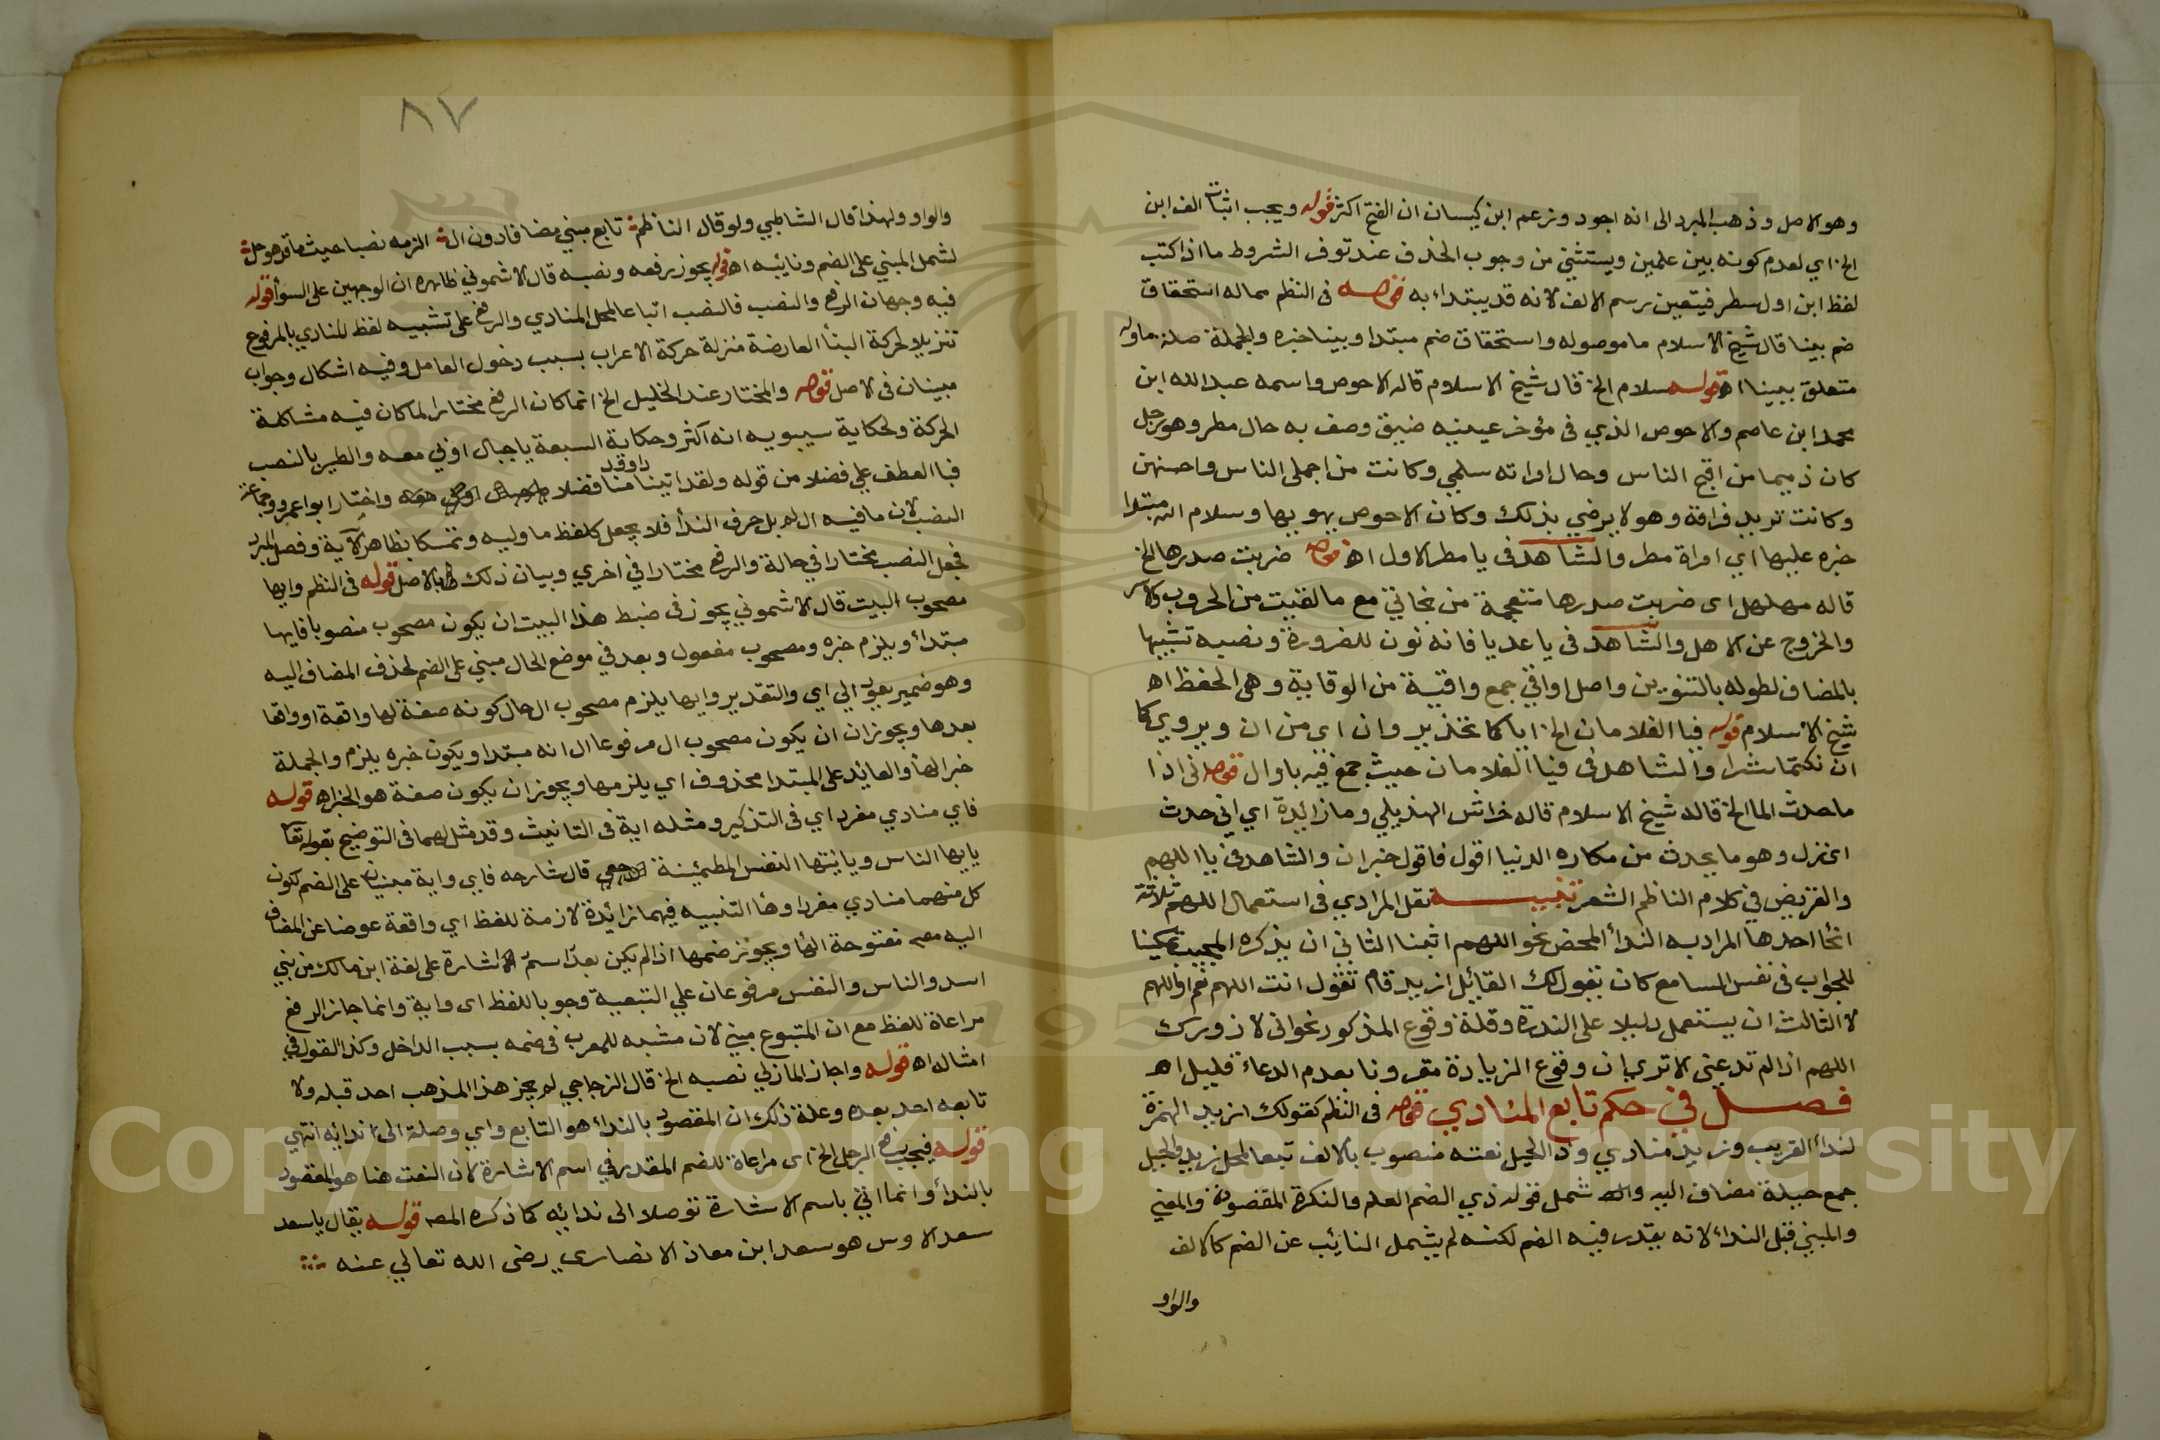 وهو الاصل وذهب المبرد الى انه اجود وزعم ابن كيسان ان الفتح اكثر قوله ويجب اثبات الف ابن
الخ اي لعدم كونه بين علمين ويستثني من وجوب الحذف عند توفر الشروط ما اذا كتب
لفظ ابن اول سطر فيتعين رسم الالف لانه قد يبتداء به قوله فى النظم مماله استحقاق
ضم بينا قال شيخ الاسلام ما موصوله واستحقاق ضم مبتدا وبينا خبره والجملة صلة ماوله
متعلق ببينا اه قوله سلام الخ قال شيخ الاسلام قاله الاحوص واسمه عبد الله ابن
محمد ابن عاصم والاحوص الذي فى مؤخر عينيه ضيق وصف به حال مطر وهو رجل
كان ذميما من اقبح الناس وحال امراته سلمي وكانت من اجمل الناس واحسنهن
وكانت تريد فراقه وهو لا يرضي بذلك وكان الاحوص يهويها وسلام الله مبتدا
خبره عليها اي امراة مطر والشاهد فى يا مطر الاول اه قوله ضربت صدرها الخ
قاله مهلهل اى ضربت صدرها متعجبة من نجاتي مع ما لقيت من الحروب والاسر
والخروج عن الاهل والشاهد فى يا عديا فانه نون للضرورة ونصبه تشبيها
بالمضاف لطوله بالتنوين واصل اواقي جمع واقية من الوقاية وهى الحفظ اه
شيخ الاسلام قوله فيا الغلامان الخ اياكما تحذير وان اى من ان ويروي كما
ان تكتما شرا والشاهد فى فيا الغلامان حيث جمع فيه يا وال قوله انى اذا
ما حدث الما الخ قاله شيخ الاسلام قاله خراش الهذيلي وما زائدة اي اني حدث
اى نزل وهو ما يحدث من مكاره الدنيا اقول فاقول خبر ان والشاهد فى يا اللهم
والقريض في كلام الناظم الشعر تنبيه نقل المرادي فى استعمال اللهم ثلاثة
انحا احدها المراد به الندأ المحض نحو اللهم اثبنا الثاني ان يذكره المجيب تمكينا
للجواب فى نفس السامع كان يقول لك القائل ازيد قام تقول انت اللهم نعم او اللهم
لا الثالث ان يستعمل دليلا على الندرة وقلة وقوع المذكور نحو انى لا ازورك
اللهم اذا لم تدعنى الا ترى ان وقوع الزيادة مقرونا بعدم الدعاء قليل اه
فصل في حكم تابع المنادي قوله فى النظم كقولك ازيد الهمزة
لندأ القريب وزيد منادي وذا الحيل نعته منصوب بالالف تبعا لمحل زيد والحيل
جمع حيلة مضاف اليه واله شمل قوله ذي الضم العلم والنكرة المقصودة والمعني
والمبني قبل النداء لانه يقدر فيه الضم لكنه لم يشمل النائب عن الضم كالالف
والواو
٨٧
والواو ولهذا قال الشاطبي ولو قال الناظم تابع مبني مضافا دون ال الزمه نصبا حيث ما قد هو حل
لشمل المبني على الضم ونائبه اه قوله يجوز رفعه ونصبه قال الاشموني ظاهره ان الوجهين على السوأ قوله
فيه وجهان الرفع والنصب فالنصب اتباعا لمحل المنادي والرفع على تشبيه لفظ المنادي بالمرفوع
تنزيلا لحركة البنأ العارضة منزلة حركة الاعراب بسبب دخول العامل وفيه اشكال وجواب
مبينان فى الاصل قوله والمختار عند الخليل الخ انما كان الرفع مختارا لما كان فيه مشاكلة
الحركة ولحكاية سيبويه انه اكثر وحكاية السبعة يا جبال اوبي معه والطير بالنصب
فبا العطف على فضلا من قوله ولقد اتينا داوود منا فضلا واختار ابوا عمرو وجماعة
النصب لان ما فيه ال لم يل حرف الندأ فلا يجعل كلفظ ما وليه وتمسكا بظاهر الاية وفصل المبرد
فجعل النصب مختارا في حالة والرفع مختارا في اخري وبيان ذلك بالاصل قوله فى النظم وايها
مصحوب البيت قال الاشموني يجوز فى ضبط هذا البيت ان يكون مصحوب منصوبا فايها
مبتدأ ويلزم خبره ومصحوب مفعول وبعد في موضع الحال مبني على الضم لحذف المضاف اليه
وهو ضمير يعود الي اي والتقدير وايها يلزم مصحوب ال حال كونه صفة لها واقعة او واقعا
بعدها ويجوز ان ان يكون مصحوب ال مرفوعا ال انه مبتدا ويكون خبره يلزم والجملة
خبر ايها والعائد على المبتدا محذوف اي يلزمها ويجوز ان يكون صفة هو الخبر اه قوله
فاي منادي مفرد اي فى التذكير ومثله اية فى التانيث وقد مثل لهما فى التوضيح بقوله تعا
يا يها الناس ويا يتها النفس المطمئنة قال شارحه فاي واية مبنيان على الضم لكون
كل منهما منادي مفردا وها التنبيه فيهما زائدة لازمة للفظ اي واقعة عوضا عن المضاف
اليه مع مفتوحة الها ويجوز ضمها اذا لم يكن بعدا اسم الاشارة على لغة ابن مالك من بني
اسد والناس والنفس مرفوعان علي التبعية وجوبا للفظ اى واية وانما جاز الرفع
مراعاة للفظ مع ان المتبوع مبني لان مشبه للمعرب فى ضمه بسبب الداخل وكذا القول في
امثاله اه قوله واجاز المازني نصبه الخ قال الزجاجي لم يجز هذا المذهب احد قبله ولا
تابعه احد بعده وعلة ذلك ان المقصود بالنداء هو التابع واي وصلة الى ندائه انتهي
قوله فيجب رفع الرجل الخ اى مراعاة للضم المقدر في اسم الاشارة لان النعت هنا هو المقصود
بالندأ وانما اتي باسم الاشارة توصلا الى ندائه كما ذكره المصه قوله يقال يا سعد
سعد الاوس هو سعد ابن معاذ الانصاري رضى الله تعالي عنه
Copyright © King Saud University
1957